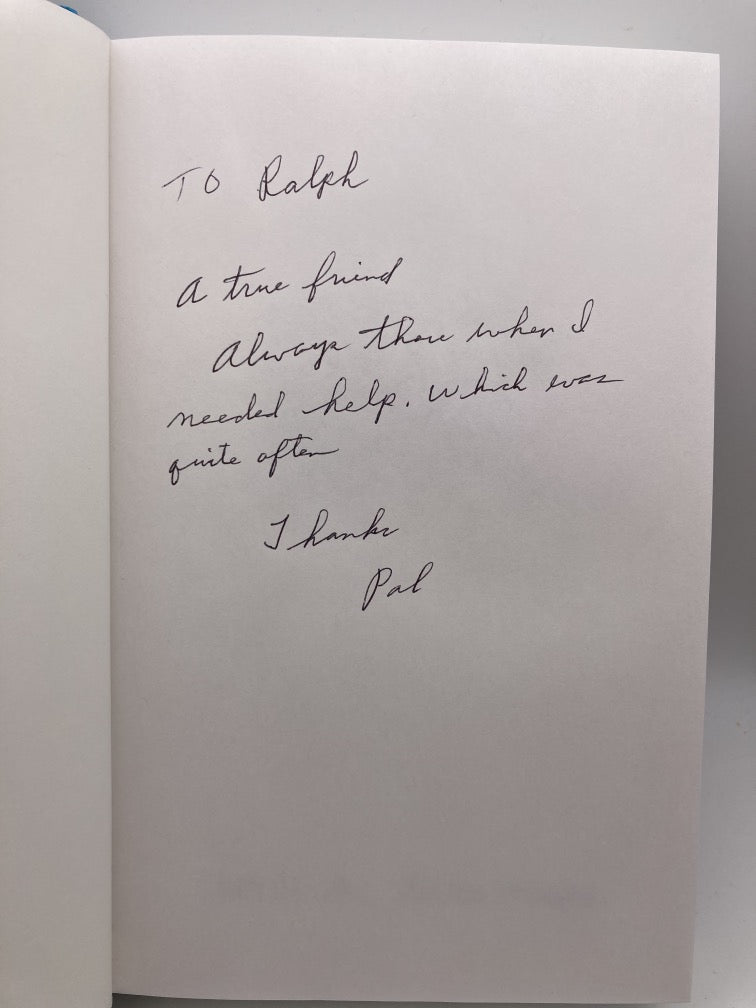 TO Ralph
A true friend
Always there when I
needed help. Which was
quite often
Thanks
Pal